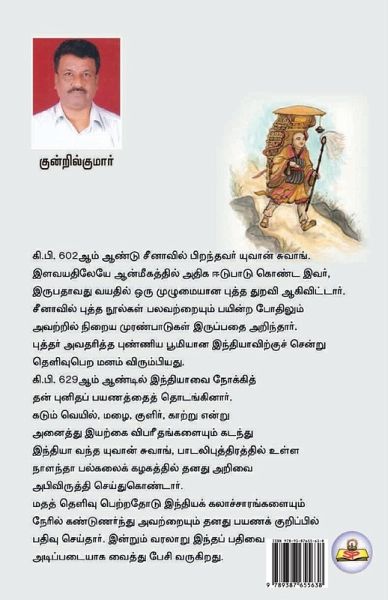 குன்றில்குமார்
கி.பி. 602ஆம் ஆண்டு சீனாவில் பிறந்தவர் யுவான் சுவாங்.
இளவயதிலேயே ஆன்மீகத்தில் அதிக ஈடுபாடு கொண்ட இவர்,
இருபதாவது வயதில் ஒரு முழுமையான புத்த துறவி ஆகிவிட்டார்.
சீனாவில் புத்த நூல்கள் பலவற்றையும் பயின்ற போதிலும்
அவற்றில் நிறைய முரண்பாடுகள் இருப்பதை அறிந்தார்.
புத்தர் அவதரித்த புண்ணிய பூமியான இந்தியாவிற்குச் சென்று
தெளிவுபெற மனம் விரும்பியது.
கி.பி. 629ஆம் ஆண்டில் இந்தியாவை நோக்கித்
தன் புனிதப் பயணத்தைத் தொடங்கினார்.
கடும் வெயில், மழை, குளிர், காற்று என்று
அனைத்து இயற்கை விபரீதங்களையும் கடந்து
இந்தியா வந்த யுவான் சுவாங், பாடலிபுத்திரத்தில் உள்ள
நாளந்தா பல்கலைக் கழகத்தில் தனது அறிவை
அபிவிருத்தி செய்துகொண்டார்.
மதத் தெளிவு பெற்றதோடு இந்தியக் கலாச்சாரங்களையும்
நேரில் கண்டுணர்ந்து அவற்றையும் தனது பயணக் குறிப்பில்
பதிவு செய்தார். இன்றும் வரலாறு இந்தப் பதிவை
அடிப்படையாக வைத்து பேசி வருகிறது.
ISBN 978-93-87655-63-8
9 789387 655638